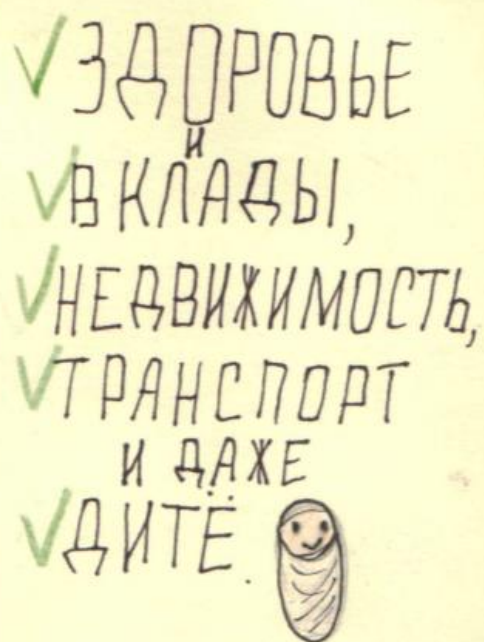 ✓ ЗДОРОВЬЕ
и
✓ ВКЛАДЫ,
✓ НЕДВИЖИМОСТЬ,
✓ ТРАНСПОРТ
И ДАЖЕ
✓ ДИТЁ.